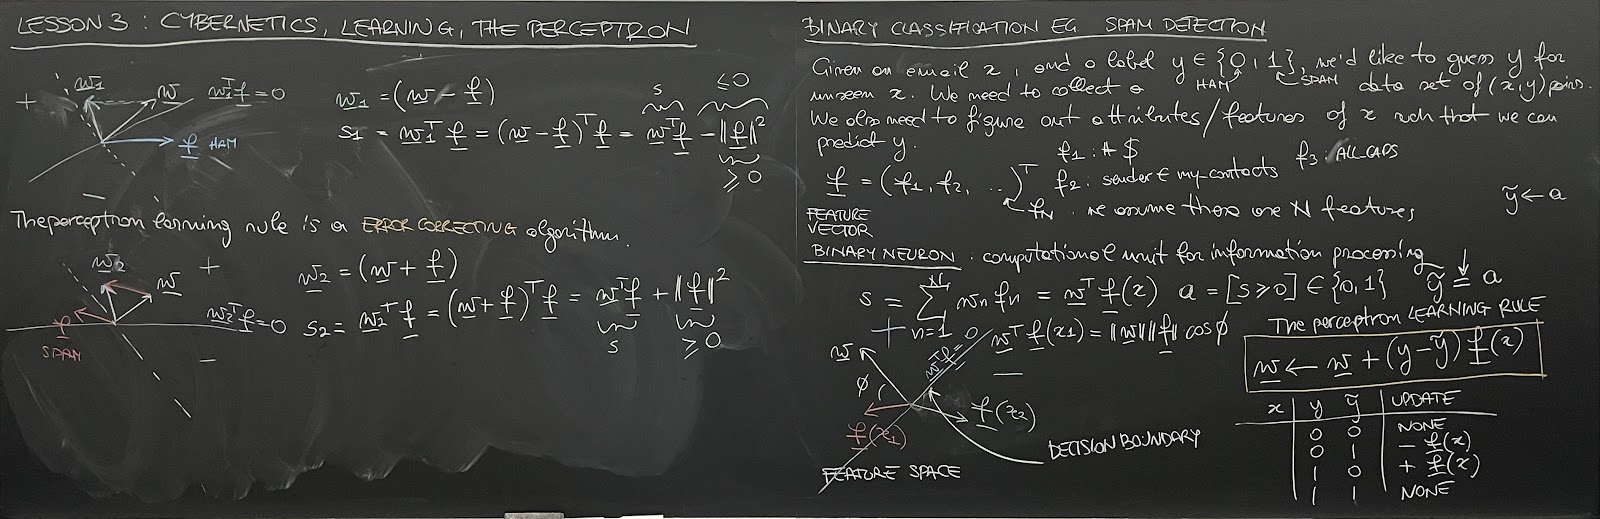 LESSON 3 : CYBERNETICS, LEARNING, THE PERCEPTRON
+ w1 w w1ᵀf = 0
f HAM
−
w1 = (w − f)
s ≤0
s1 = w1ᵀf = (w − f)ᵀf = wᵀf − ‖f‖²
≥ 0
The perceptron learning rule is a ERROR CORRECTING algorithm.
w2 + w
f
SPAM
w2ᵀf = 0
−
w2 = (w + f)
s2 = w2ᵀf = (w + f)ᵀf = wᵀf + ‖f‖²
s ≥ 0
BINARY CLASSIFICATION EG SPAM DETECTION
Given an email x, and a label y ∈ {0, 1}, we'd like to guess y for
HAM SPAM
unseen x. We need to collect a data set of (x,y) pairs.
We also need to figure out attributes/features of x such that we can
predict y.
f1 : # $ f3 : ALL CAPS
f = (f1, f2, ...)ᵀ f2 : sender ∈ my-contacts
fN : we assume there are N features
ỹ ← a
FEATURE
VECTOR
BINARY NEURON : computational unit for information processing
s = Σ wn fn = wᵀf(x) a = [s ≥ 0] ∈ {0,1} ỹ = a
N
n=1
+ wᵀf = 0 wᵀf(x1) = ‖w‖‖f‖ cos ϕ
w −
ϕ
f(x1) f(x2)
DECISION BOUNDARY
FEATURE SPACE
The perceptron LEARNING RULE
w ← w + (y − ỹ) f(x)
x | y | ỹ | UPDATE
0 0 NONE
0 1 − f(x)
1 0 + f(x)
1 1 NONE